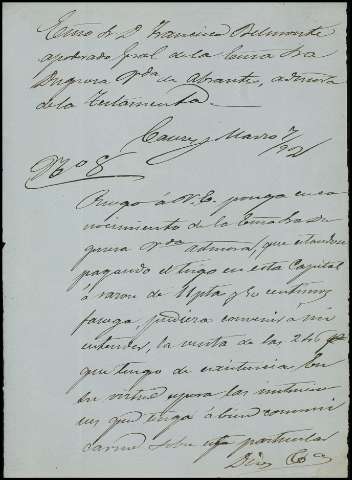 Exmo Sr D. Francisco Belmonte
apoderado Gral de la Exma Sra
Duquesa Vda de Abrantes, admora
de la Testamentaria.
Caceres y Marzo 7/902
Nº 8
Ruego á V.E. ponga en co
nocimiento de la Exma Sra Du
quesa Vda admora, que estandose
pagando el trigo en esta Capital
á razon de 11 pta y 50 centimos
fanega, pudiera convenir á mi
entender, la venta de las 246
que tengo de existencia. En
su virtud espero las instruccio
nes que tenga á bien comuni
carme sobre este particular
Dios &a